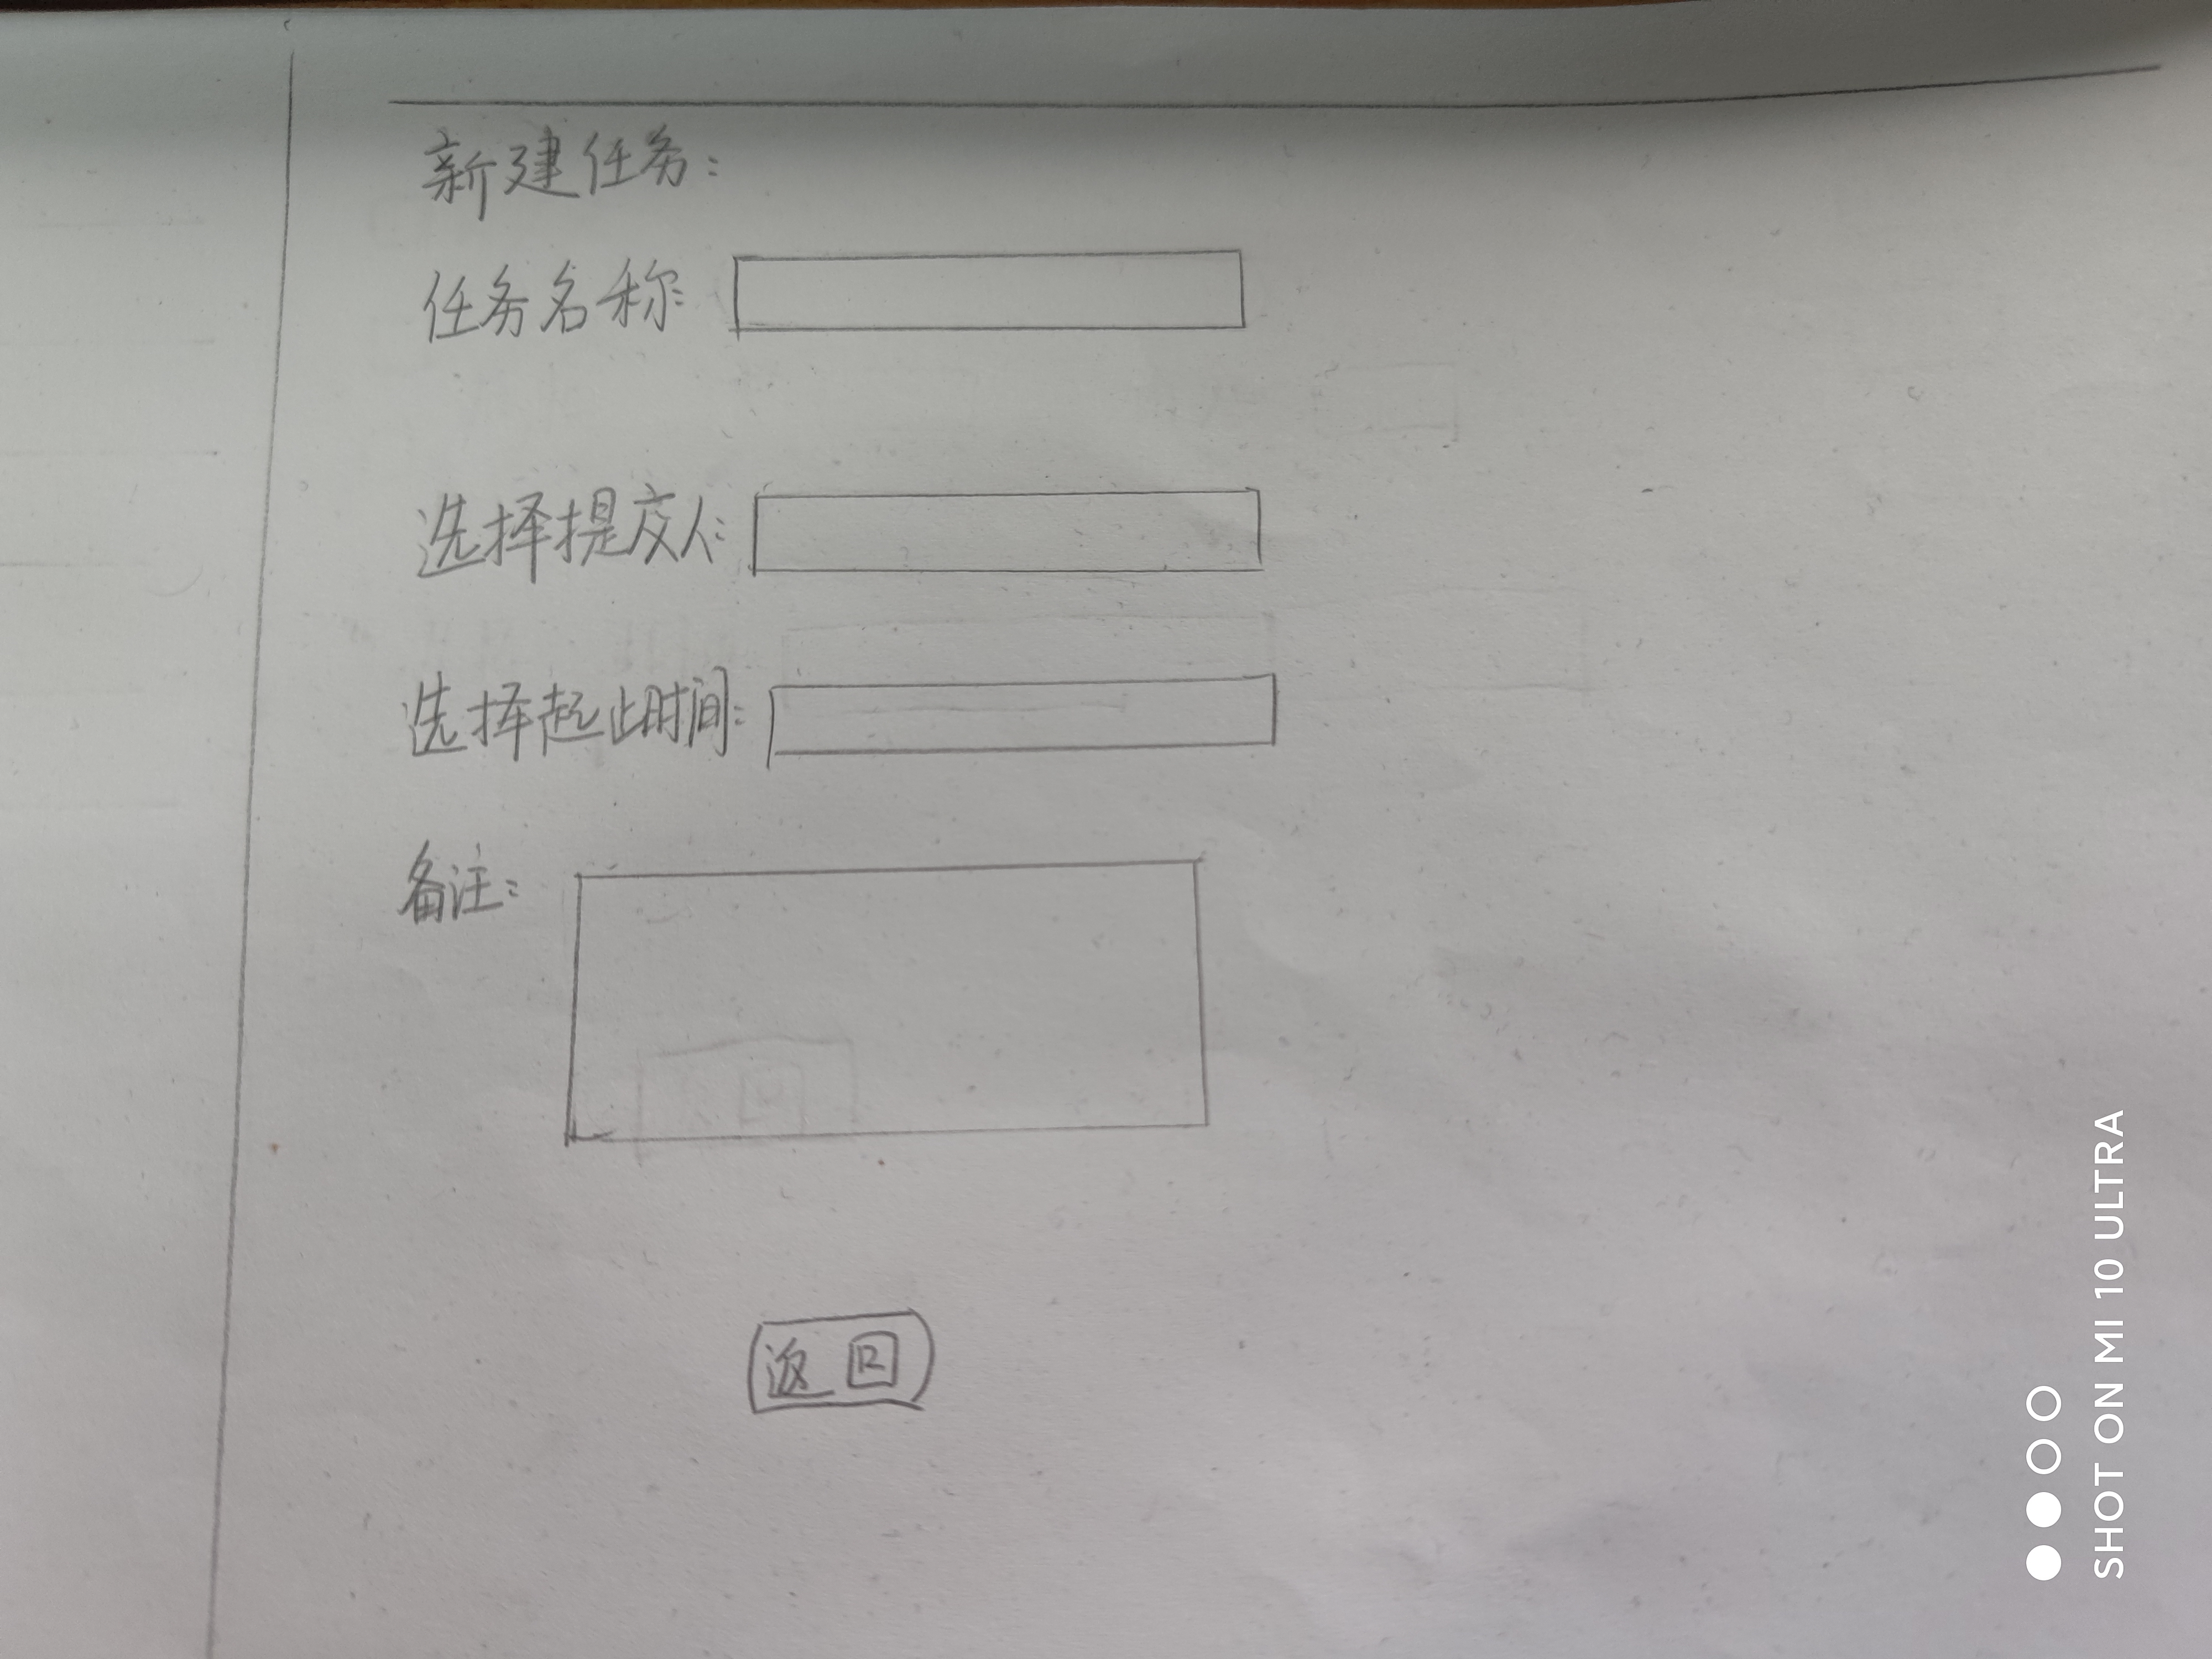 新建任务:
任务名称:
选择提交人:
选择起止时间:
备注:
返回
SHOT ON MI 10 ULTRA